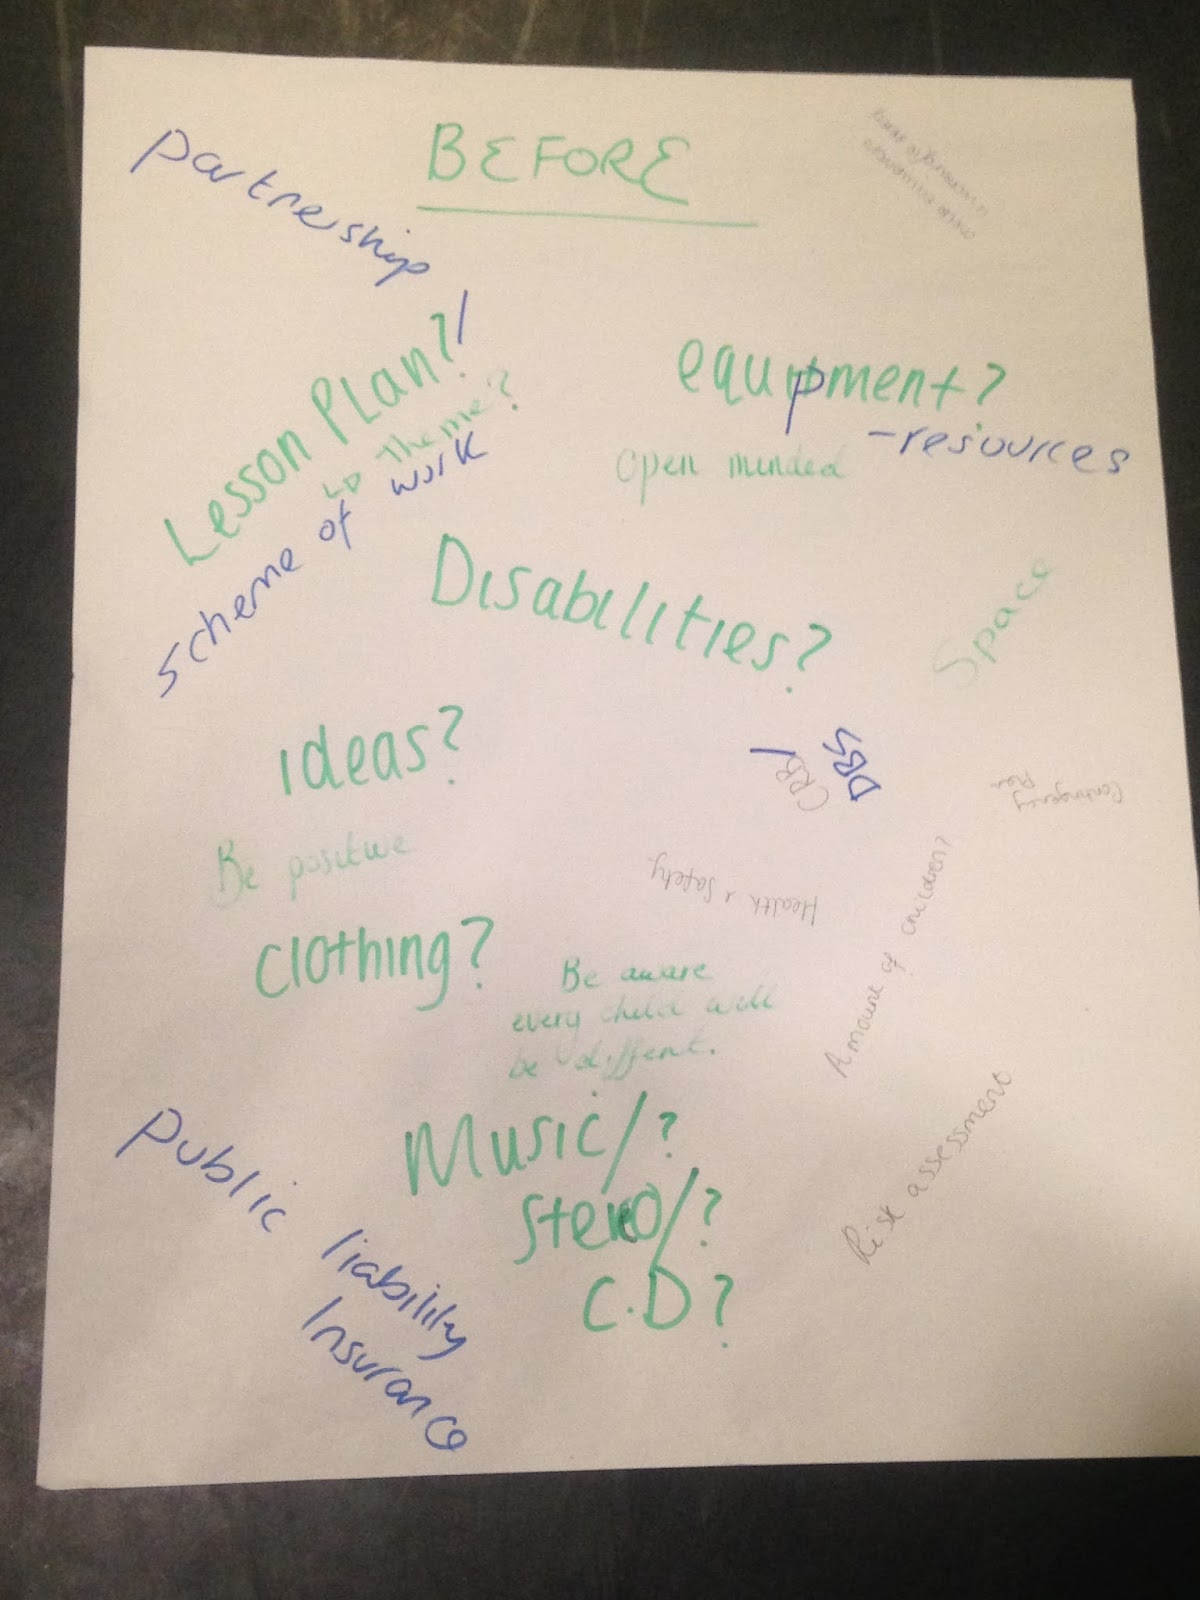 BEFORE
partnership
Lesson Plan?/
↳ Theme?
scheme of work
equipment?
-resources
Open minded
Disabilities?
Space
ideas?
CRB/
DBS
Contingency
Plan
Be positive
Health & Safety.
Amount of children?
clothing?
Be aware
every child will
be diffent.
Risk assessment
Music/?
Stereo/?
C.D?
Public liability
Insurance